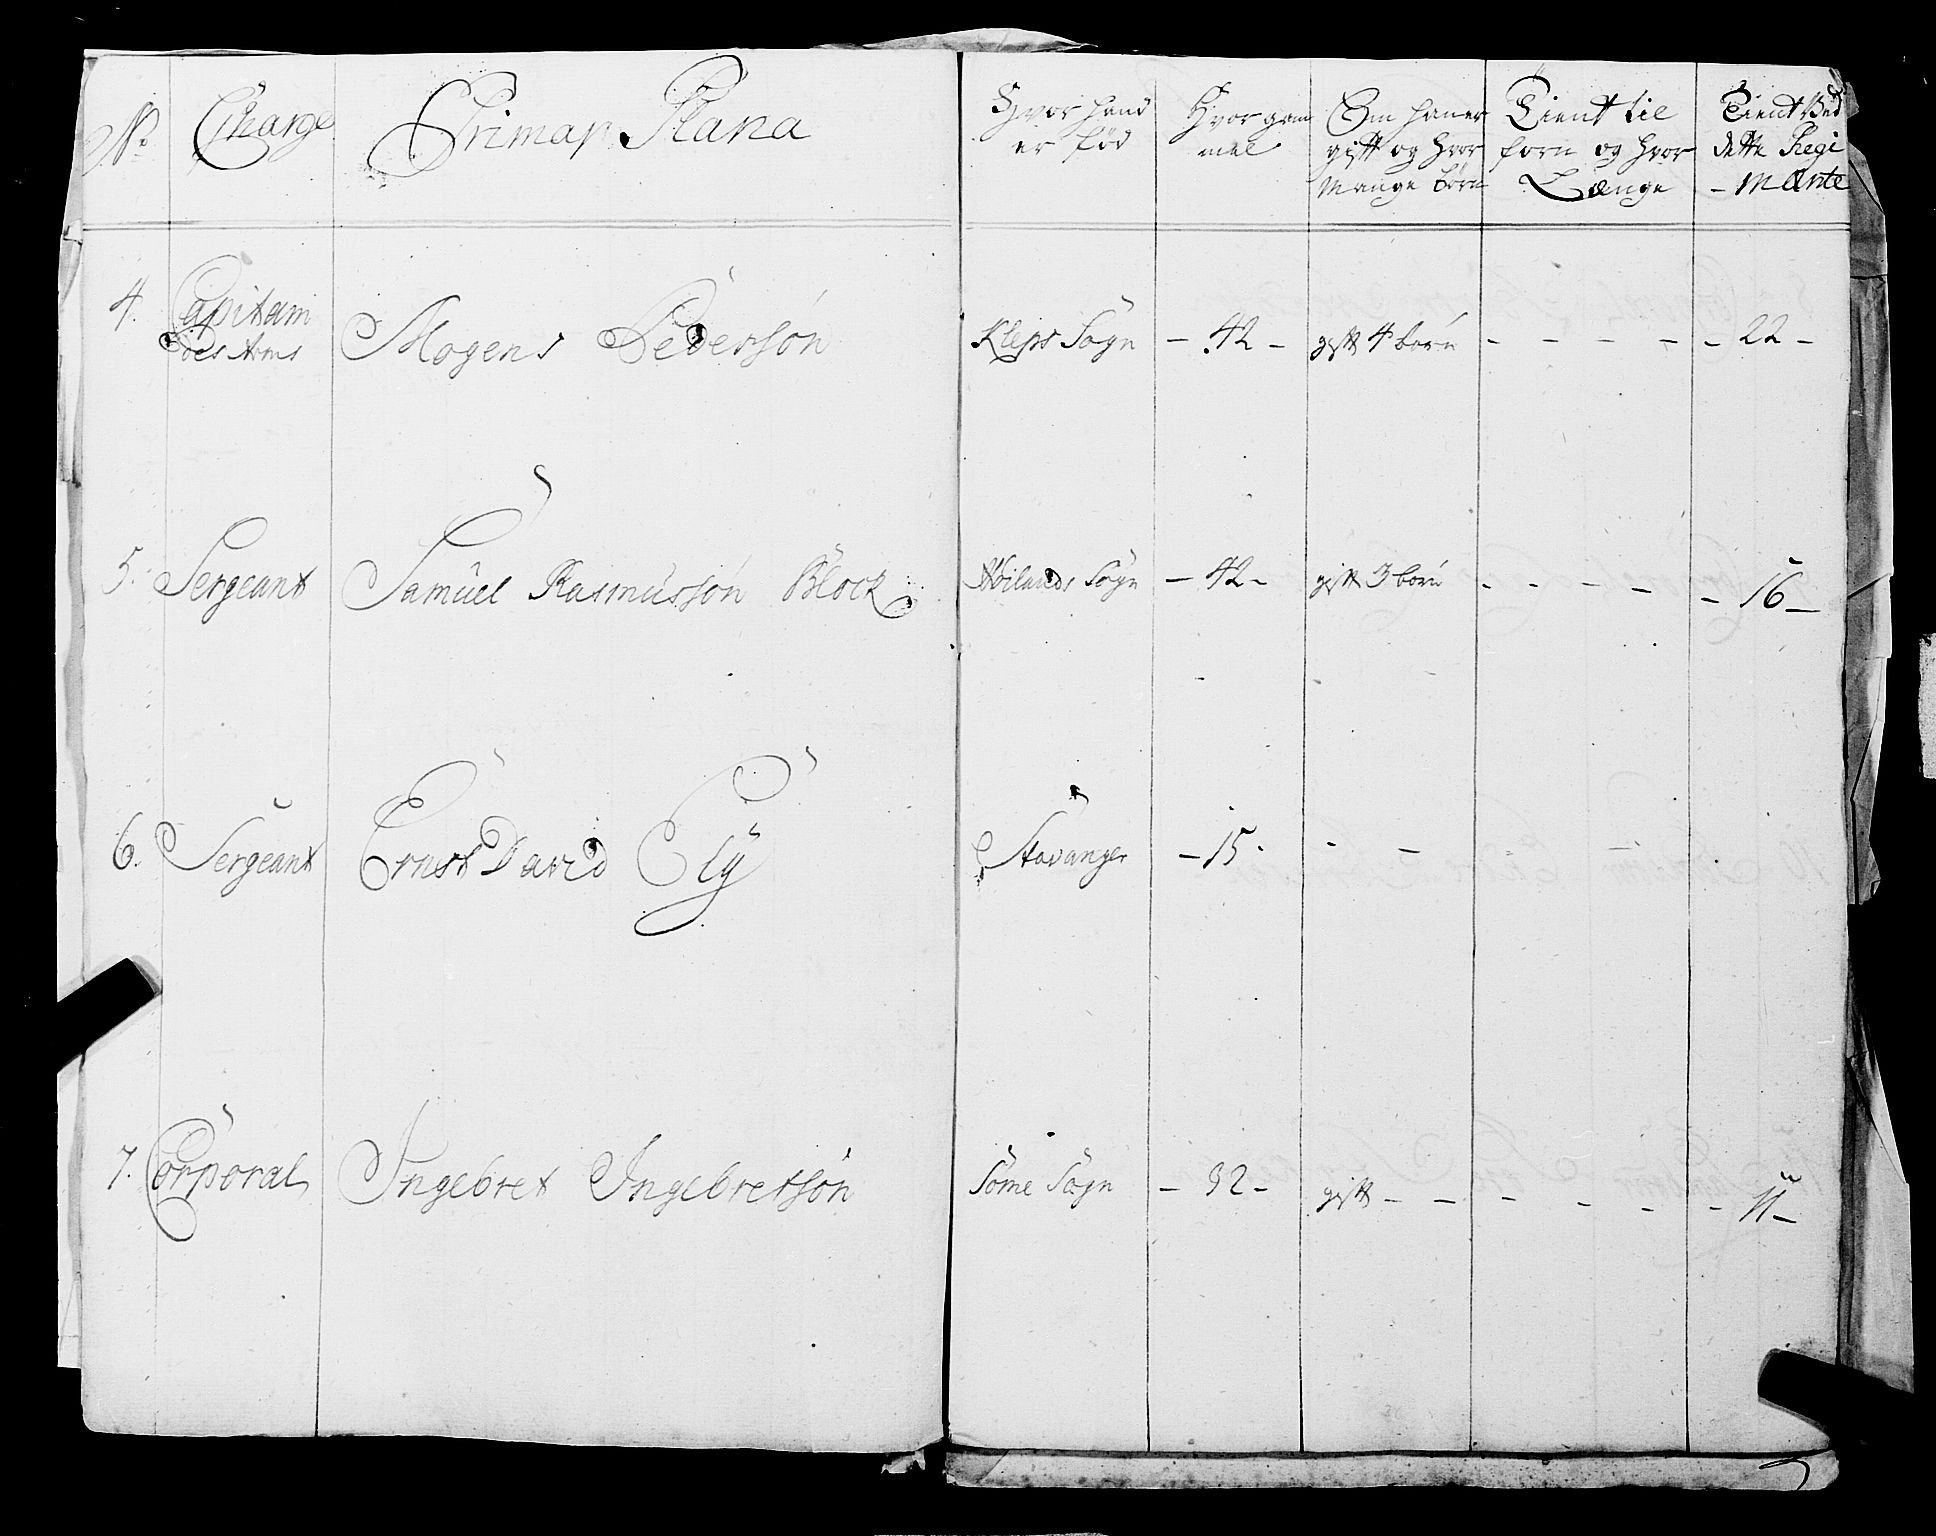 No. Charge Primap Plana Hvor hand er fød Hvor gammel Om han er gift og hvor Mange børn Tient til forn og hvor Længe Tient Ved dette Regimænte
4. Capitain des Arms Mogens Pedersøn Kleps Sogn - 42 - gift 4 børn - - - - - 22 -
5. Sergeant Samuel Rasmussøn Block Høilands Sogn - 42 - gift 3 børn - - - - - 16 -
6. Sergeant Ernst David Ely Stavanger - 15 - - - - -
7. Corporal Ingebret Ingebretsøn Some Sogn - 32 - gift - - - - - - 11 -